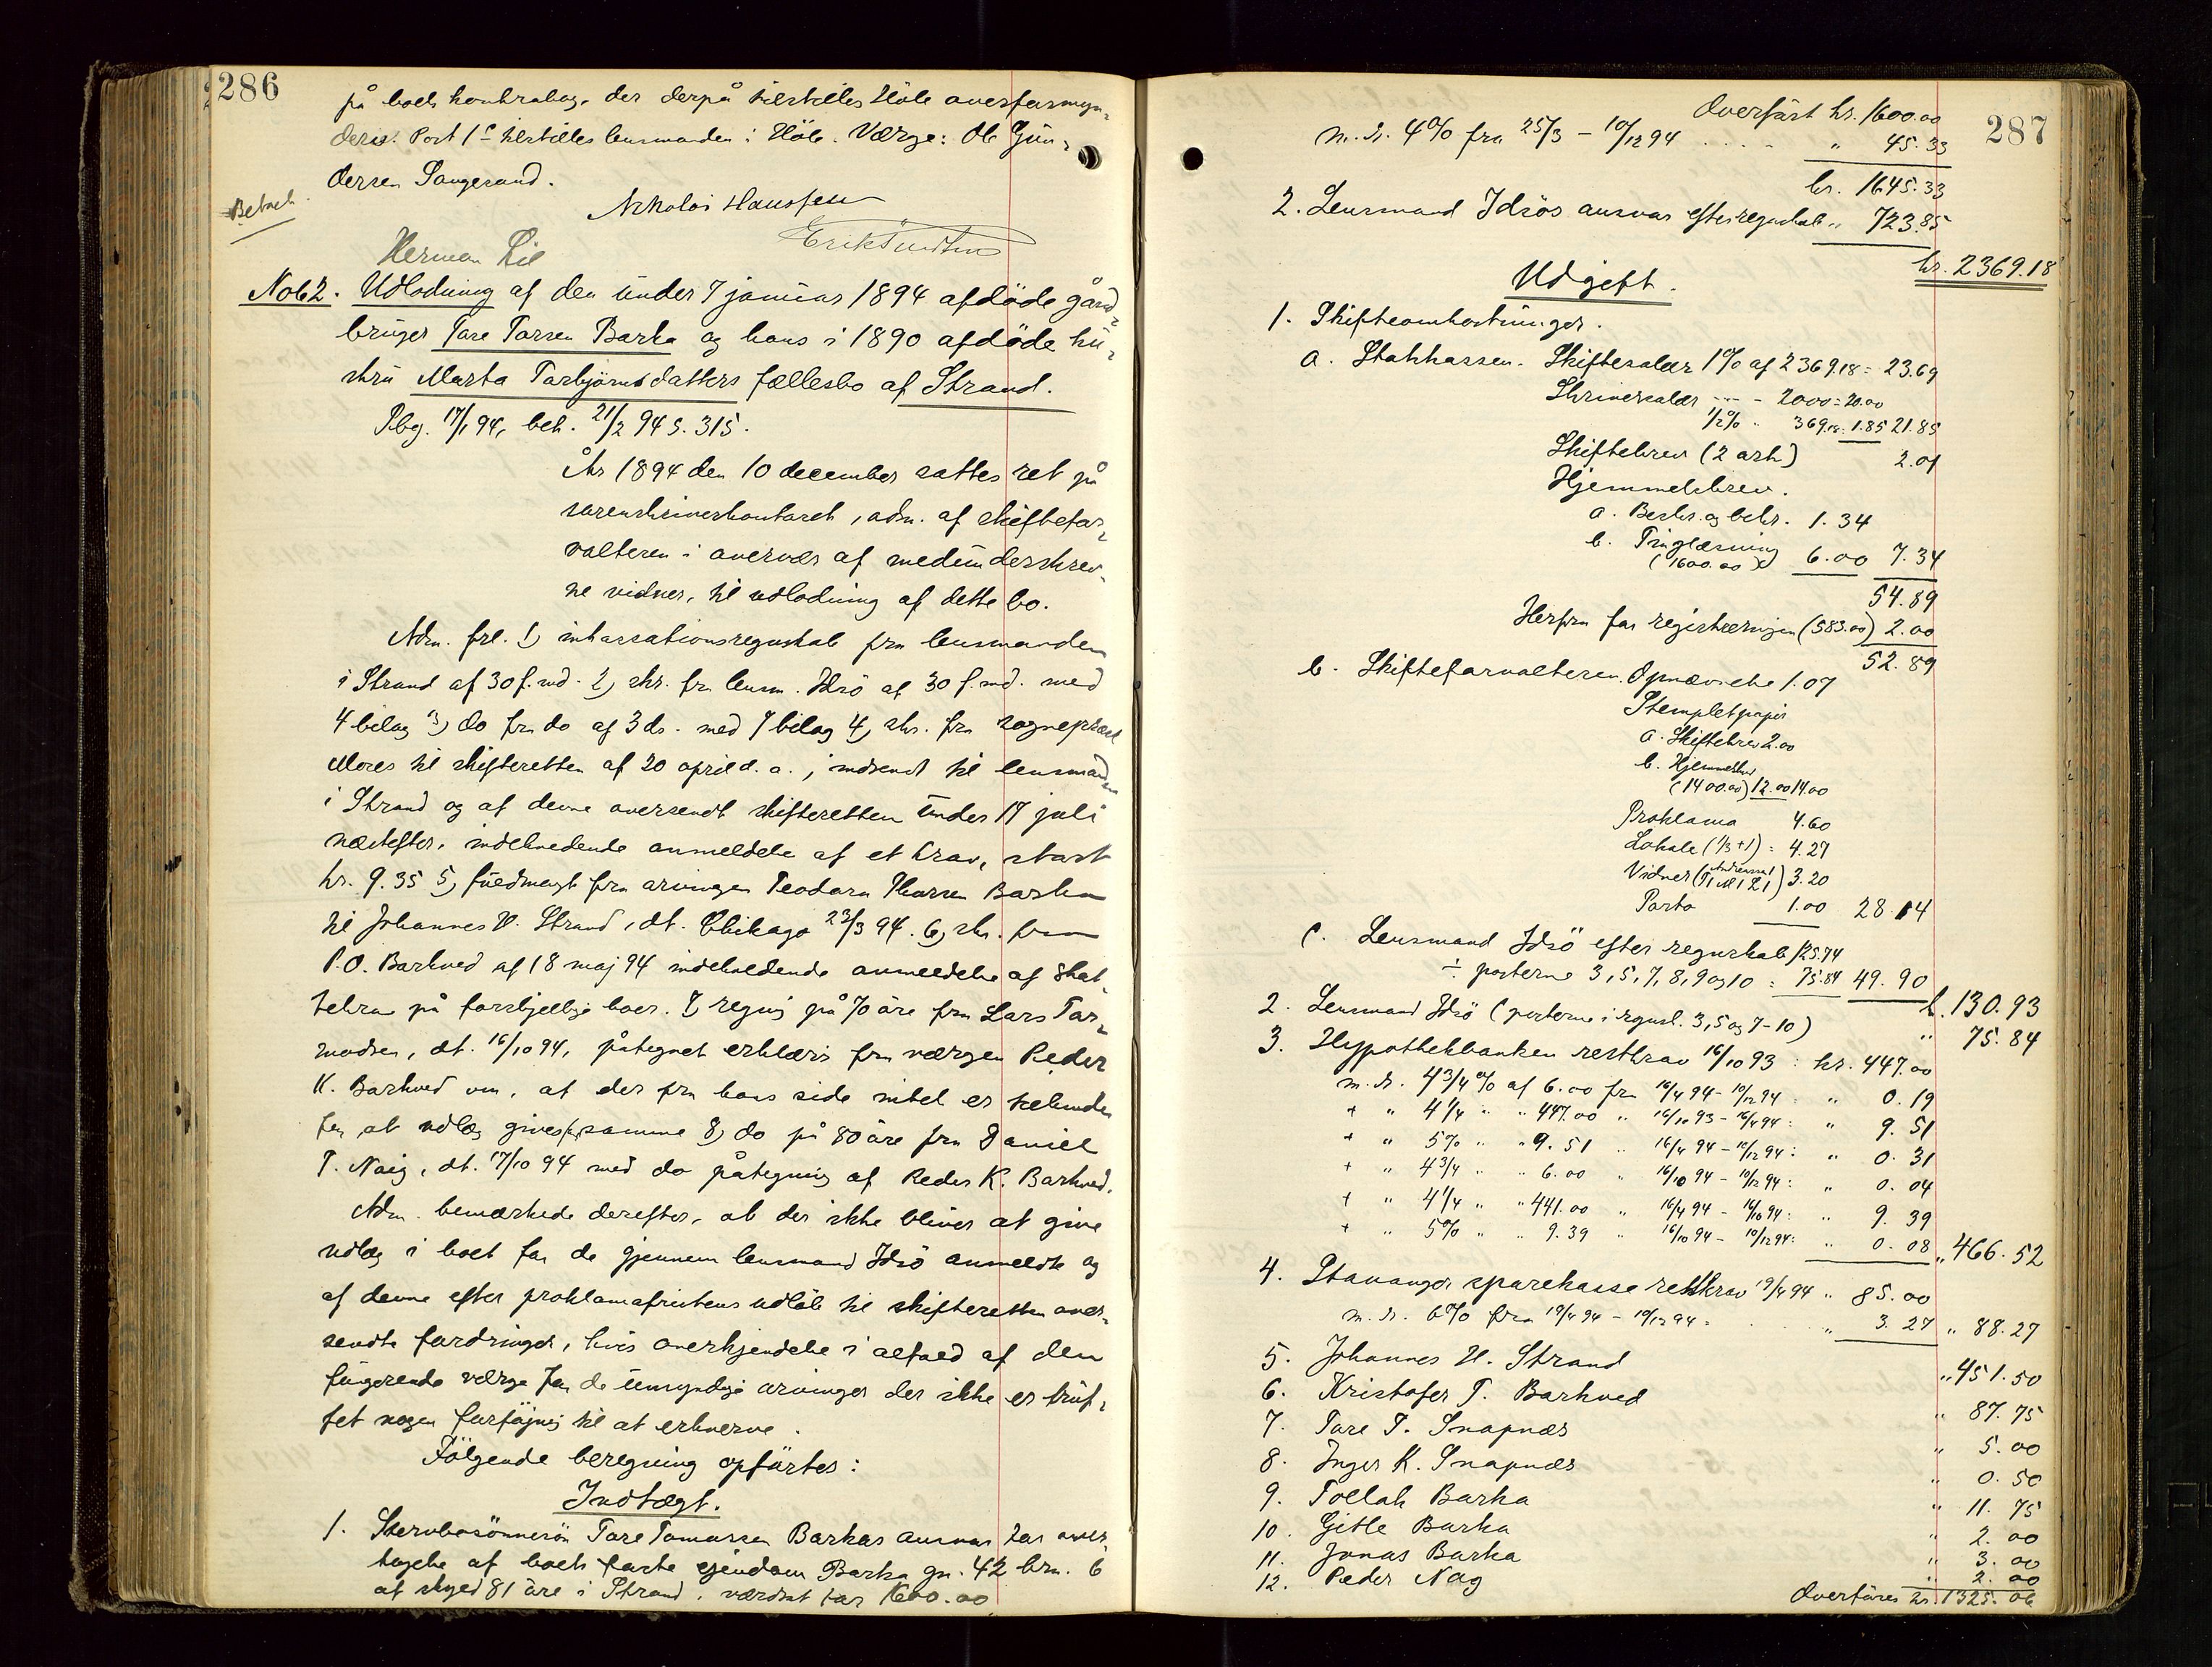 286
på boets kontrabog, der derpå tilstilles Høle overformyn-
deri. Post 1 c tilstilles lensmanden i Høle. Værge: Ole Gun-
dersen Songesand.
Betalt
Nikolai Haussen
Erik Tuntland
Herman Lie
No 62. Udlodning af den under 7 januar 1894 afdøde gård-
bruger Tore Torsen Barka og hans i 1890 afdøde hu-
stru Marta Torbjørnsdatters fællesbo af Strand.
Rbg. 17/1 94, beh. 21/2 94 s. 315.
År 1894 den 10 december sattes ret på
sorenskriverkontoret, adm. af skiftefor-
valteren i overvær af medunderskrev-
ne vidner, til udlodning af dette bo.
Adm. frl. 1) inkassationsregnskab fra lensmanden
i Strand af 30 f. md. 2) skr. fra lensm. Idsö af 30 f. md. med
4 bilag 3) do fra do af 3 ds. med 7 bilag 4) skr. fra sogneprest
Moses til skifteretten af 20 april d. a., indsendt til lensmanden
i Strand og af denne oversendt skifteretten under 17 juli
næstefter, indeholdende anmeldelse af et krav, stort
kr. 9.35 5) fuldmagt fra arvingen Teodora Thorsen Barka
til Johannes H. Strand, dt. Chikago 23/3 94. 6) skr. fra
P.O. Barkved af 18 maj 94 indeholdende anmeldelse af skat-
tekrav på forskjellige boer. 7) regnig på 70 øre fra Lars Tor-
modsen, dt. 16/10 94, påtegnet erklæring fra værgen Peder
K. Barkved om, at der fra hans side intet er til hinder
for, at udlæg gives for samme 8) do på 80 øre fra Daniel
T. Naig, dt. 17/10 94 med do påtegning af Peder K. Barkved.
Adm. bemærkede derefter, at der ikke bliver at give
udlæg i boet for de gjennem lensmand Idsö anmeldte og
af denne efter proklamafristens udløb til skifteretten over-
sendte fordringer, hvis anerkjendelse i alfald af den
fungerende værge for de umyndige arvinger der ikke er truf-
fet nogen forføjning til at erhverve.
Følgende beregning opførtes:
Indtægt.
1. Stervbosønnesøn Tore Tomassen Barkas ansvar for over-
tagelse af boets faste ejendom Barka gn. 42 brn. 6
af skyld 81 øre i Strand, værdsat for 1600.00
287
Overført kr. 1600.00
m. r. 4% fra 25/3 - 10/12 94 . . . . " 45.33
kr. 1645.33
2. Lensmand Idsös ansvar efter regnskab " 723.85
kr. 2369.18
Udgift.
1. Skifteomkostninger.
a. Statskassen. Skiftesalær 1% af 2369.18 = 23.69
Skriversalær - - - 2000 = 20.00
1/2% " 369.18 = 1.85 21.85
Skiftebrev (2 ark) 2.01
Hjemmelsbrev.
a. Beskr. og bekr. 1.34
b. Tinglæsning
(1600.00) 6.00 7.34
54.89
Herfra for registreringen (583.00) 2.00
52.89
b. Skifteforvalteren. Opnævnelse 1.07
Stempletpapir
a. Skiftebrev 2.00
b. Hjemmelsbr
(1400.00) 12.00 14.00
Proklama 4.60
Lokale (1/3+1) = 4.27
Vidner 3.20
Porto 1.00 28.14
c. Lensmand Idsö efter regnskab 125.74
÷ posterne 3, 5, 7, 8, 9 og 10 = 75.84 49.90
k. 130.93
2. Lensmand Idsö (posterne i regnsk. 3, 5 og 7-10) " 75.84
3. Hypothekbanken restkrav 16/10 93 : kr. 447.00
m. r. 4 3/4 % af 6.00 fra 16/4 94 - 10/12 94 : " 0.19
+ " 4 1/4 " " 447.00 " 16/10 93 - 16/4 94 : " 9.51
+ " 5% " " 9.51 " 16/4 94 - 10/12 94 : " 0.31
+ " 4 3/4 " " 6.00 " 16/10 94 - 10/12 94 : " 0.04
+ " 4 1/4 " " 441.00 " 16/4 94 - 16/10 94 : " 9.39
+ " 5% " " 9.39 " 16/10 94 - 10/12 94 : " 0.08 " 466.52
4. Stavanger sparekasse restkrav 19/4 94 " 85.00
m. r. 6% fra 19/4 94 - 10/12 94 . . " 3.27 " 88.27
5. Johannes H. Strand " 451.50
6. Kristofer T. Barkved " 87.75
7. Tore T. Snapnæs " 5.00
8. Inger K. Snapnæs " 0.50
9. Tollak Barka " 11.75
10. Gitle Barka " 2.00
11. Jonas Barka " 3.00
12. Peder Nag " 2.00
Overføres kr. 1325.06